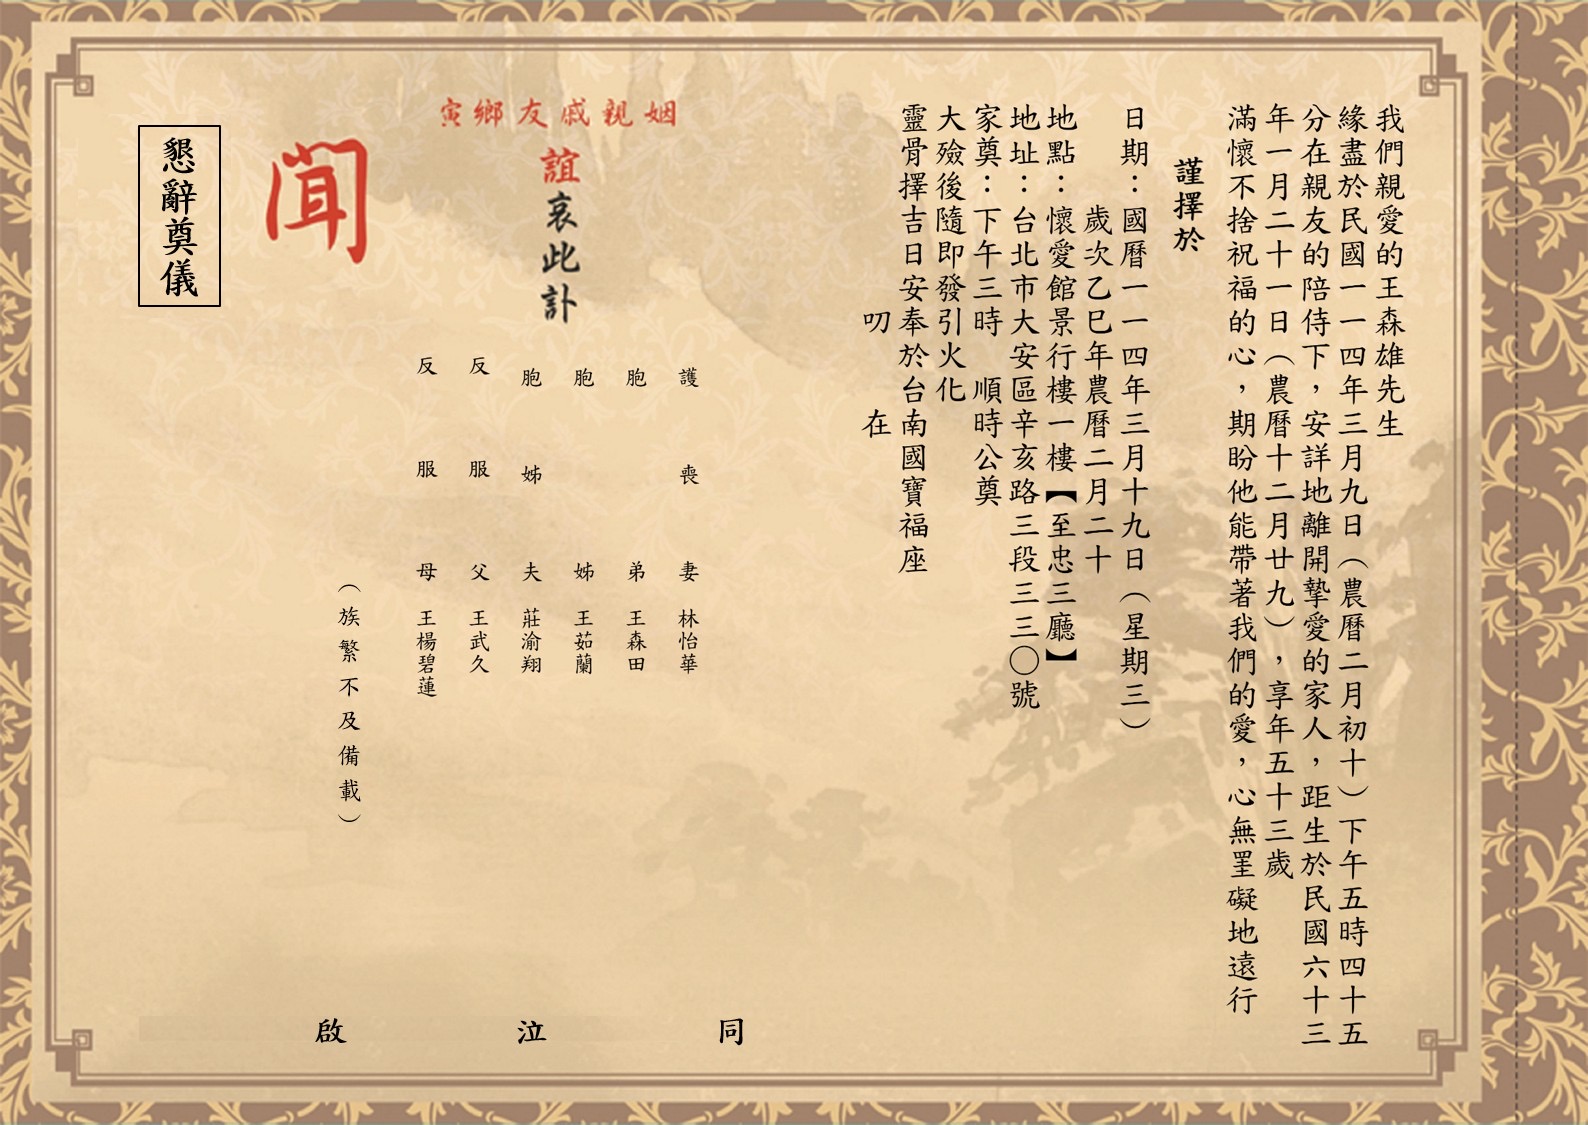 我們親愛的王森雄先生
緣盡於民國一一四年三月九日（農曆二月初十）下午五時四十五
分在親友的陪侍下，安詳地離開摯愛的家人，距生於民國六十三
年一月二十一日（農曆十二月廿九），享年五十三歲
滿懷不捨祝福的心，期盼他能帶著我們的愛，心無罣礙地遠行
謹擇於
日期：國曆一一四年三月十九日（星期三）
歲次乙巳年農曆二月二十
地點：懷愛館景行樓一樓【至忠三廳】
地址：台北市大安區辛亥路三段三三〇號
家奠：下午三時　順時公奠
大殮後隨即發引火化
靈骨擇吉日安奉於台南國寶福座
叨　在
姻親戚友鄉寅
誼哀此訃
聞
護喪妻　林怡華
胞弟　王森田
胞姊　王茹蘭
胞姊夫　莊渝翔
反服父　王武久
反服母　王楊碧蓮
（族繁不及備載）
同泣啟
懇辭奠儀